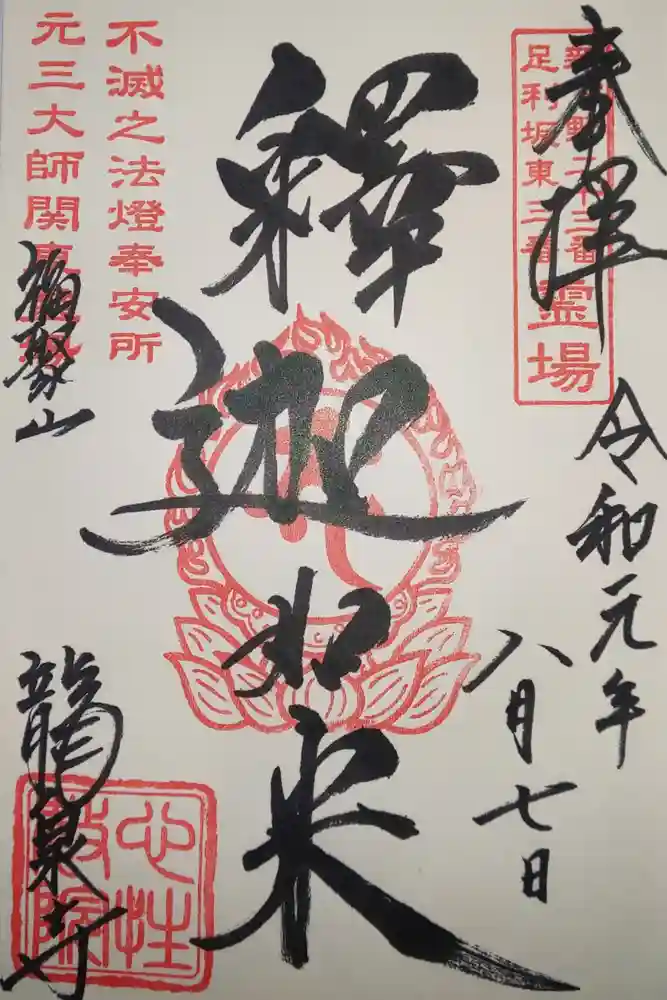 奉拝
三十三番
足利坂東三番
霊場
令和元年
八月七日
釋迦如来
不滅之法燈奉安所
元三大師関
福聚山
龍泉寺
心性